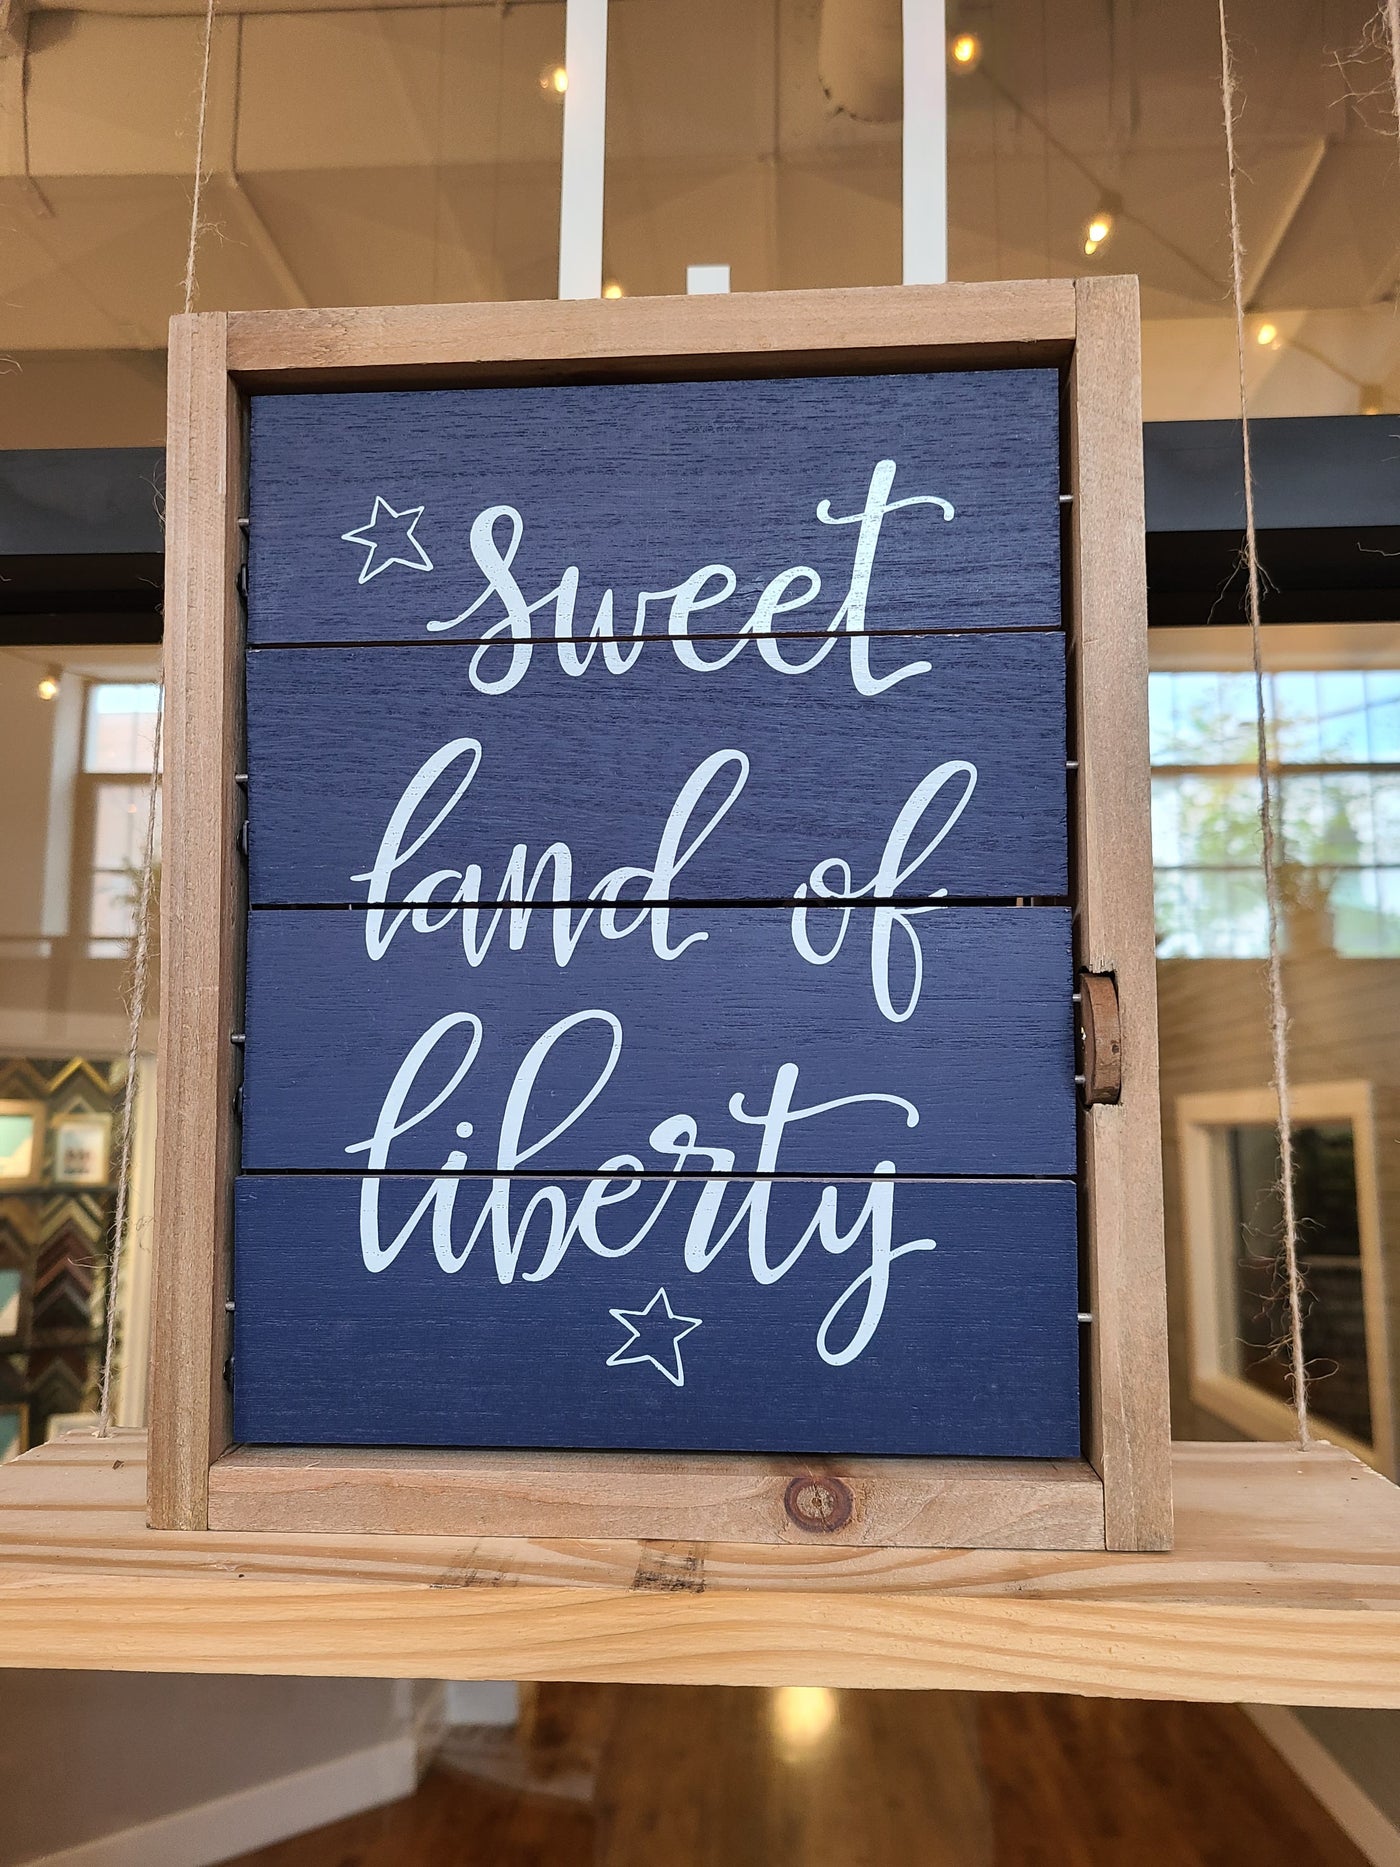 sweet
land of
liberty